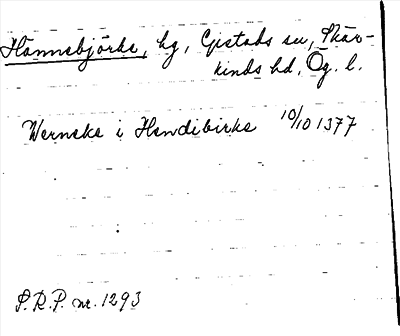 Hännebjörke, hg, Gistads sn, Skär-
kinds hd, Ög. l.
Werneke i Hendibirke 10/10 1377
S.R.P. nr. 1293